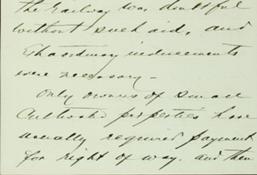 the Railway was doubtful
without such aid, and
Extraordinary inducements
were necessary -
Only owners of small
Cultivated properties have
usually required payment
for right of way. and then